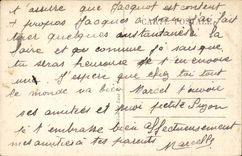 t assure que Jacquot est content
propos Jacques a
tirer quelques instantanés à la
foire et comme je sais que
tu seras heureuse
J'espère que chez toi tout
le monde va bien Marcel t'envoie
ses amitiés et moi petite Suzon
je t'embrasse bien affectueusement
mes amitiés à tes parents
Marcelle
CARTE